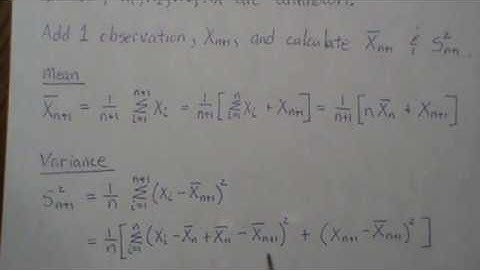 are unknown.
Add 1 observation, Xₙ₊₁, and calculate X̄ₙ₊₁ & S²ₙ₊₁.
Mean
X̄ₙ₊₁ = 1/(n+1) Σᵢ₌₁ⁿ⁺¹ Xᵢ = 1/(n+1) [Σᵢ₌₁ⁿ Xᵢ + Xₙ₊₁] = 1/(n+1) [n X̄ₙ + Xₙ₊₁]
Variance
S²ₙ₊₁ = 1/n Σᵢ₌₁ⁿ⁺¹ (Xᵢ - X̄ₙ₊₁)²
= 1/n [Σᵢ₌₁ⁿ (Xᵢ - X̄ₙ + X̄ₙ - X̄ₙ₊₁)² + (Xₙ₊₁ - X̄ₙ₊₁)²]